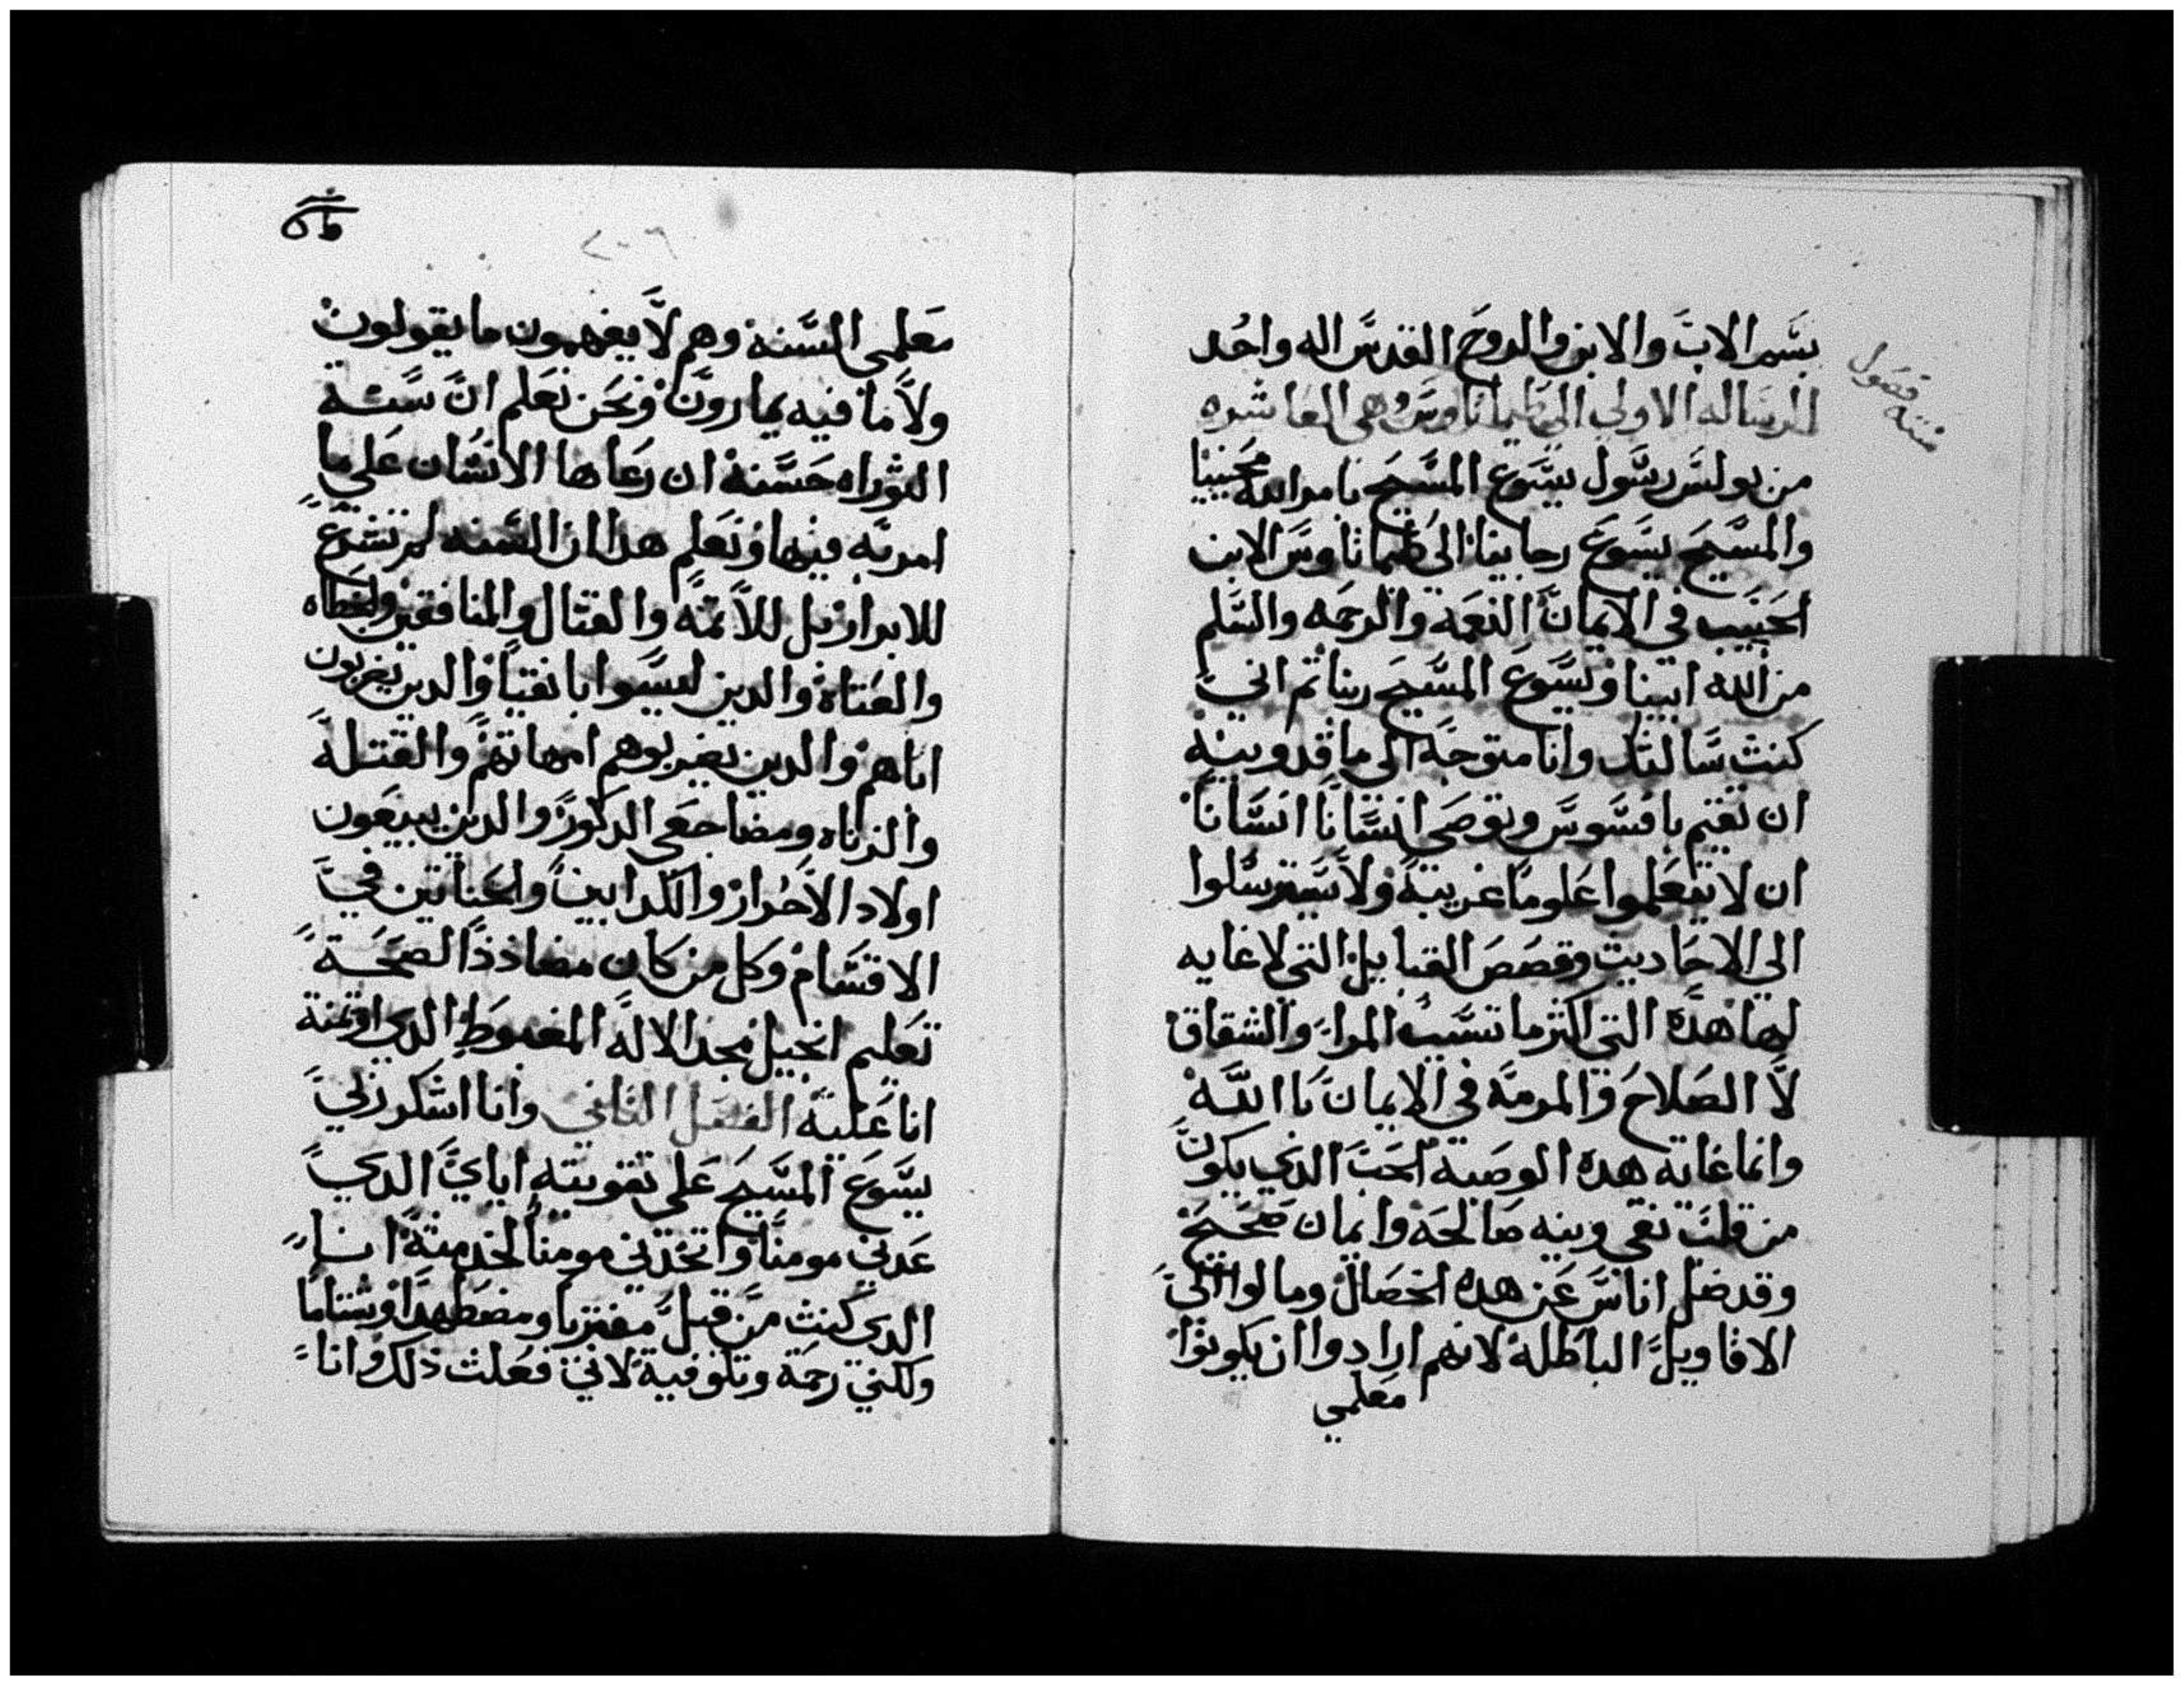 بسم الاب والابن والروح القدس اله واحد
الرساله الاولي الي طيماتاوس وهي العاشره
ستة فصول
من بولس رسول يسوع المسيح بامر الله محيينا
والمسيح يسوع رجاينا الي طيماتاوس الابن
الحبيب في الايمان النعمة والرحمه والسلم
من الله ابينا ويسوع المسيح ربنا ثم اني
كنت سالتك وانا متوجه الي ماقدونيه
ان تقيم بافسوس وتوصي انسانا انسانا
ان لا يتعلموا علوما غريبة ولا يسترسلوا
الي الاحاديث وقصص القبايل التي لا غايه
لها هذه التي اكثر ما تسبب المرا والشقاق
لا الصلاح والمرمة في الايمان باالله
وانما غاية هده الوصية الحب الدي يكون
من قلب نقي ونيه صالحه وايمان صحيح
وقد ضل اناس عن هده الخصال ومالوا الي
الاقاويل الباطلة لانهم ارادوا ان يكونوا
معلمي
معلمي السنة وهم لا يفهمون ما يقولون
ولا ما فيه يمارون ونحن نعلم ان سنة
التوراه حسنة ان رعاها الانسان علي ما
امر به فيها ونعلم هدا ان السنه لم تشرع
للابرار بل للاثمة والقتال والمنافقين والخطاه
والعتاة والدين ليسوا باتقيا والدين يضربون
اباهم والدين يضربوهم امهاتهم والقتلة
والزناه ومضاجعي الدكور والدين يبيعون
اولاد الاحرار والكدابين والحناتين في
الاقسام وكل من كان مضاددا لصحة
تعليم انجيل مجد الاله المغبوط الدي اوتمنة
انا علية الفصل الثاني وانا اشكر ربي
يسوع المسيح علي تقويته اياي الدي
عدني مومنا واتخدني مومنا لخدمتة انا
الدي كنت من قبل مفتريا ومضطهدا وشتاما
ولكني رحمة وتلوفية لاني فعلت ذلك وانا